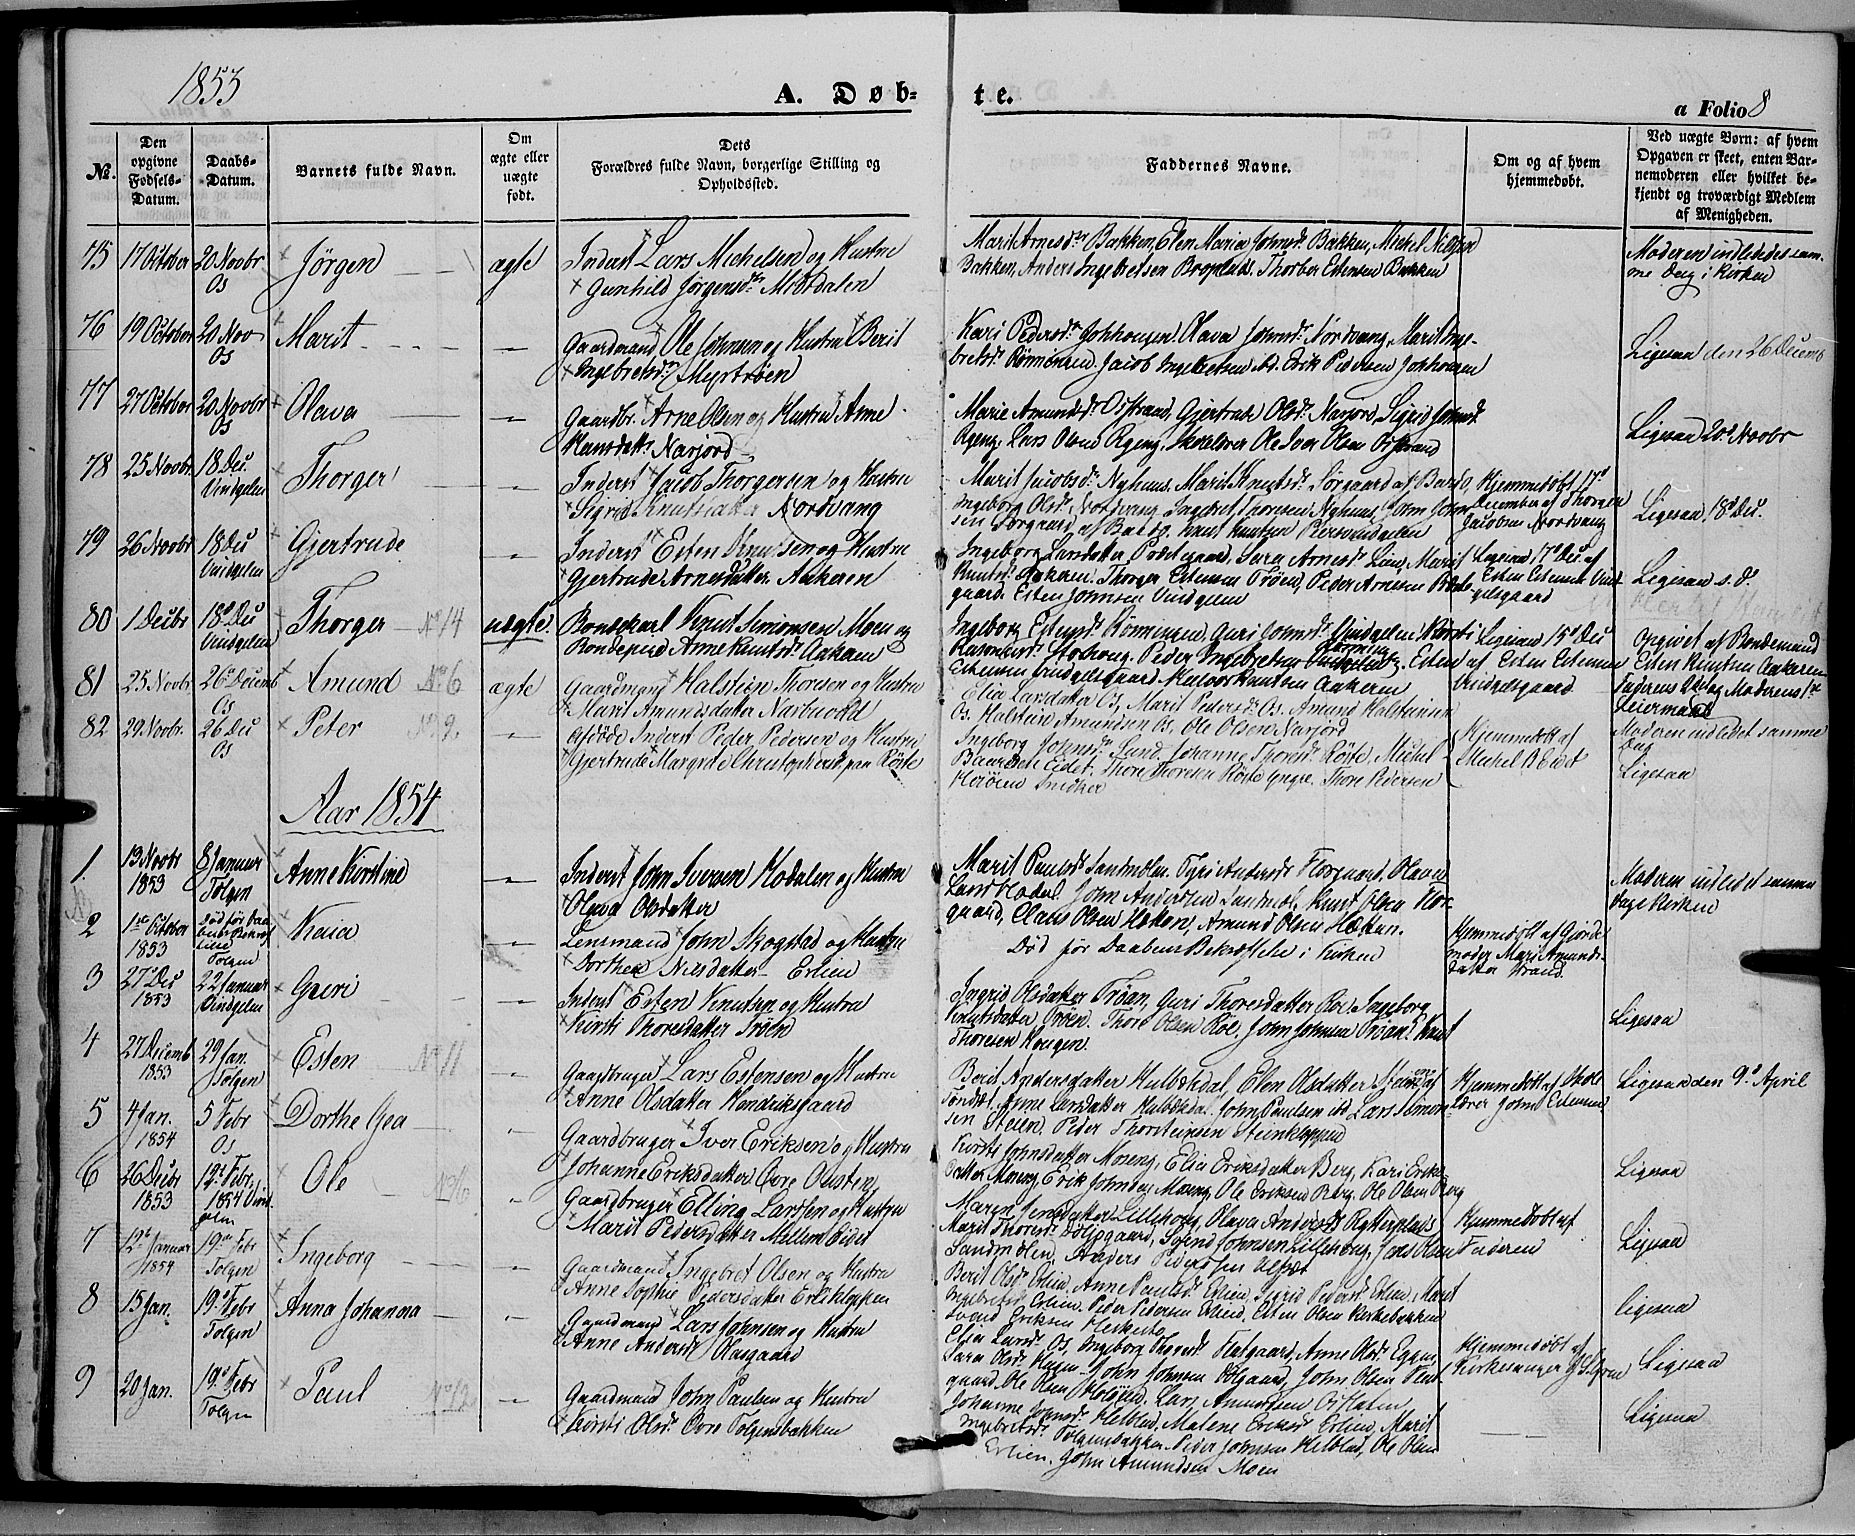 1853
A. Døb-
te.
a Folio 8
№.
Den
opgivne
Fødsels-
Datum.
Daabs-
Datum.
Barnets fulde Navn.
Om
ægte eller
uægte
født.
Dets
Forældres fulde Navn, borgerlige Stilling og
Opholdssted.
Faddernes Navne.
Om og af hvem
hjemmedøbt.
Ved uægte Børn: af hvem
Opgaven er skeet, enten Bar-
nemoderen eller hvilket be-
kjendt og troværdigt Medlem
af Menigheden.
75
17 October
20 Novbr
Os
Jørgen
ægte
Inderst Lars Michelsen og Hustru
Gunhild Jørgensdr Midtdalen
Marit Arnesdtr Bakken, Elen Maria Johnsdr Bakken, Michel Nielsen
Bakken, Anders Ingebretsen Broplads. Thorber Estensen Bakken
Moderen indlededes sam-
me Dag i Kirken
76
19 October
20 Nov
Os
Marit
Gaardmand Ole Johnsen og Hustru Berit
Ingebretsdr Myrtrøen
Kari Pedersdr Johhougen, Olava Johnsdr Nordvang, Marit Inge-
bretsdr Rønningen, Jacob Ingebretsen sd. Erik Pedersen Johhougen
Ligesaa den 26 Decemb
77
27 October
20 Novbr
Os
Olava
Gaardbr. Arne Olsen og Hustru Anne
Hansdattr Narjord
Marie Amundsdr Osstrand, Gjertrude Olsdr Narjord, Sigrid Johnsdr
Ryeng, Lars Olsen Ryeng, Skolelærer Ole Iver Olsen Osstrand
Ligesaa 20d Novbr
78
25 Novbr.
18 Dec.
Vindgelen
Thorger
Inderst Jacob Thorgersen og Hustru
Sigrid Knutsdatter Nordvang
Marit Jacobsdr Nyhuus. Marit Knutsdr Sørgaard af Bardo,
Ingeborg Olsdr Nordvang. Ingebret Thoresen Nyhuus, John John-
sen Sørgaard af Bardo. Knut Knutsen Persvindgelen
Hjemmedøbt 17d
December af Thorger
Jacobsen Nordvang
Ligesaa 18d Dec.
79
26 Novbr
18 Dec
Vindgelen
Gjertrude
Inderst Esten Knutsen og Hustru
Gjertrude Arnesdatter Aakeren
Ingeborg Larsdatter Postegaard, Sara Arnesdr Lien, Marit
Knutsdr Aakeren. Thorger Estensen Trøen, Peder Arnesen Postе-
gaard. Esten Johnsen Vindgelen
Ligesaa 17d Dec af
Esten Estensen Vind-
gelsgaard
Ligesaa s. d.
80
1 Decbr
18d Dec
Vindgelen
Thorger
No 14
uægte
Bondekarl Knut Simonsen Moen og
Bondepige Anne Knutsdr Aakeren
Ingeborg Estensdr Rønningen, Guri Johnsdr Vindgelen, Kirsti
Estensen Vindgelsgaard. Halvor Knutsen Aakeren
Ligesaa 15d Dec
af Esten Estensen
Vindgelsgaard
Opgivet af Bondemand
Esten Knutsen Aakeren
Faderens 2det og Moderens 1ste
Leiermaal
81
25 Novbr
26de Decemb
Os
Amund
No 6
ægte
Gaardmand Halstein Thoresen og Hustru
Marit Amundsdatter Narbuvold
Elia Larsdatter Os, Marit Pedersdr Os. Amund Halsteinsen
Os. Halstein Amundsen Os, Ole Olsen Narjord
Moderen indledet samme
Dag
82
29 Novbr.
26 Dec
Os
Peter
No 9.
Afdøde Inderst Peder Pedersen og Hustru
Gjertrude Margrete Christophersdr paa Røste
Ingeborg Johnsdr Lund. Johanne Thoresdr Røste, Michel
Baardsen Eidet. Thore Thoresen Røste yngre. Thore Pedersen
Horøien Snidker
Hjemmedøbt af
Michel B. Eidet
Ligesaa
Aar 1854
1.
13 Novbr
1853
8 Januar
Tolgen
Anne Kirstine
Inderst John Iversen Hodalen og Hustru
Olava Olsdatter
Marit Paulsdr Sandmælen. Gyri Andersdr Florgaard, Olava
Larsdr Hodal. John Andersen Sandmæl. Knut Olsen Nor-
gaard, Claus Olsen Holten, Amund Olsen Holten.
Moderen indledet samme
dag i Kirken
2
1ste October
1853
Død før Daa-
bens Bekræf-
telse
Tolgen
Kaia
Lensmand John Skogstad og Hustru
Dorthea Nielsdatter Erlien
Død før Daabens Bekræftelse i Kirken
Hjemmedøbt af Gjorde-
moder Mari Amunds-
datter Strand.
3
27d Dec
1853
22 Januar
Vindgelen
Guri
Inderst Esten Knutsen og Hustru
Kirsti Thoresdatter Trøen
Ingrid Olsdatter Trøan, Guri Thoresdatter Roe. Ingeborg
Knutsdatter Trøen. Thore Olsen Roe, John Johnsen Trøan. Knut
Thoresen Hougen.
Ligesaa
4
27 Decemb
1853
29 Jan.
Tolgen
Esten
No 11
Gaardbruger Lars Estensen og Hustru
Anne Olsdatter Hendriksgaard
Berit Andersdatter Hulbækdal, Elen Olsdatter Steien af
Tøndset. Anne Larsdatter Hulbækdal. John Paulsen ibd. Lars Simon-
sen Steien. Peder Thorsteinsen Steinkloppen
Hjemmedøbt af Skole-
lærer John Estensen
Ligesaa den 9d April
5
4 Jan.
1854
5 Febr
Os
Dorthe Gea
Gaardbruger Iver Eriksen og Hustru
Johanne Eriksdatter Øvre Ousten
Kirsti Johnsdatter Moseng, Elia Eriksdatter Berg, Kari Eriks-
datter Moseng, Erik Johnsen Moseng, Ole Eriksen Berg. Ole Olsen Berg
Ligesaa
6
26 Decbr
1853
12te Febr.
1854 Vind-
gelen
Ole
No 16
Gaardbruger Elling Larsen og Hustru
Marit Pedersdatter Mellem Eidet
Maren Jensdatter Lillehoug, Olava Andersdr Rytterplads
Marit Thoresdr Dølsgaard, Svend Johnsen Lillehoug, Jens Olsen
Sandmælen, Anders Pedersen Olsæt
Hjemmedøbt af
Faderen
Ligesaa
7
12t Januar
1854
19de Febr
Tolgen
Ingeborg
Gaardmand Ingebret Olsen og Hustru
Anne Sophie Pedersdatter Erliklappen
Berit Olsdr Erlien, Anne Paulsdr Erlien, Sigrid Pedersdr Erlien, Marit
Ingebretsdr Erlien. Peder Pedersen Erlien, Esten Olsen Kirkebakken
Svend Eriksen
ligesaa
8
15 Jan.
19d Febr
Tolgen
Anna Johanna
Gaardmand Lars Johnsen og Hustru
Anne Andersdr Olasgaard
Elia Larsdr Os, Ingeborg Thoresdr Flatgaard, Anne Olsdr Eggen,
Sara Olsdr Hagen. John Johnsen Dølgaard, John Olsen Flat-
gaard. Ole Olsen Holøien. Lars Amundsen
Hjemmedøbt af
Kirkesanger
Ligesaa
9
20 Jan.
19d Febr
Tolgen
Paul
No 12
Gaardmand John Paulsen og Hustru
Kirsti Olsdr Øvre Tolgensbakken
Johanne Johnsdr Helblad, Malene Eriksdr Erlien, Marit
Ingebretsdr Tolgensbakken, Peder Johnsen Helblad, Ole Olsen
Erlien. John Amundsen Moen
Ligesaa